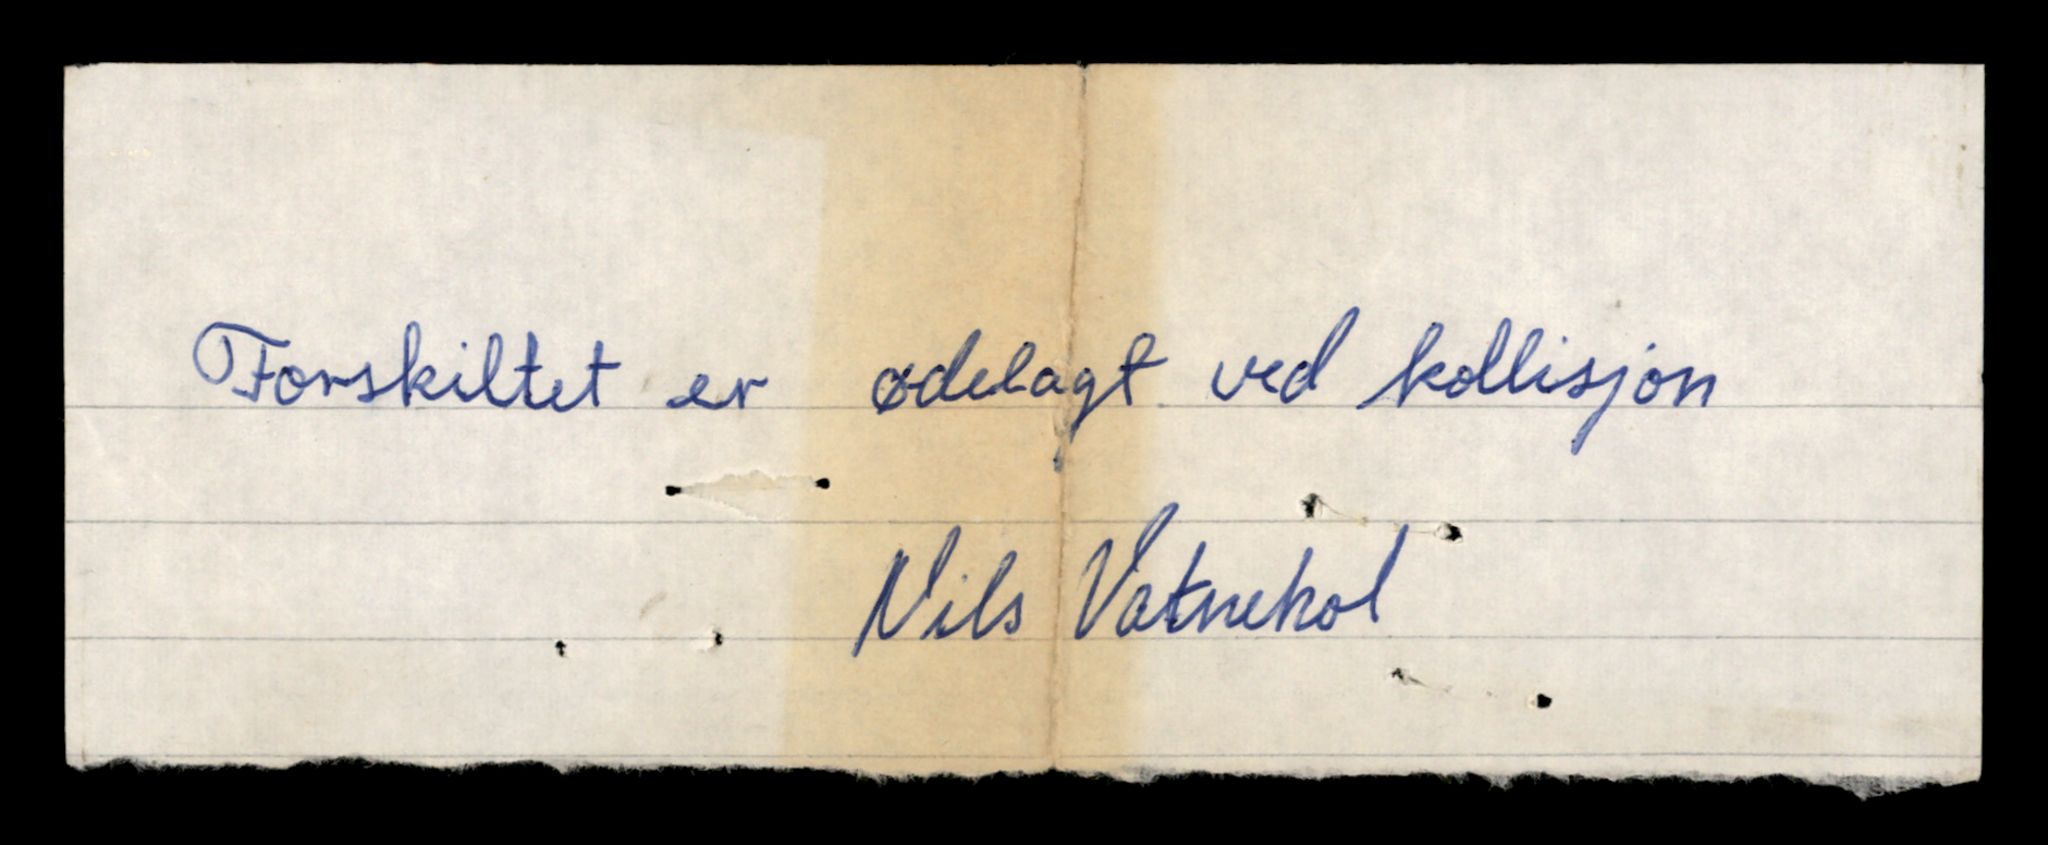 Forskiltet er ødelagt ved kollisjon
Nils Vatnehol